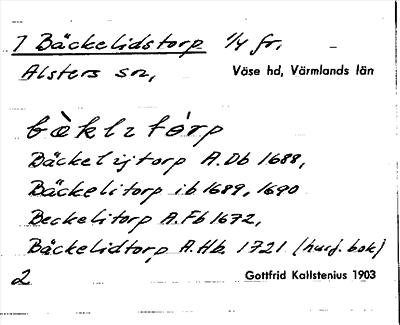 7 Bäckelidstorp 1/4 fr.
Alsters sn, Väse hd, Värmlands län
bὰklιtórp
Bäckelijtorp A.Db 1688,
Bäckelitorp ib 1689, 1690
Beckelitorp A.Fb 1672,
Bäckelidtorp A.Hb. 1721 (husf. bok)
2 Gottfrid Kallstenius 1903